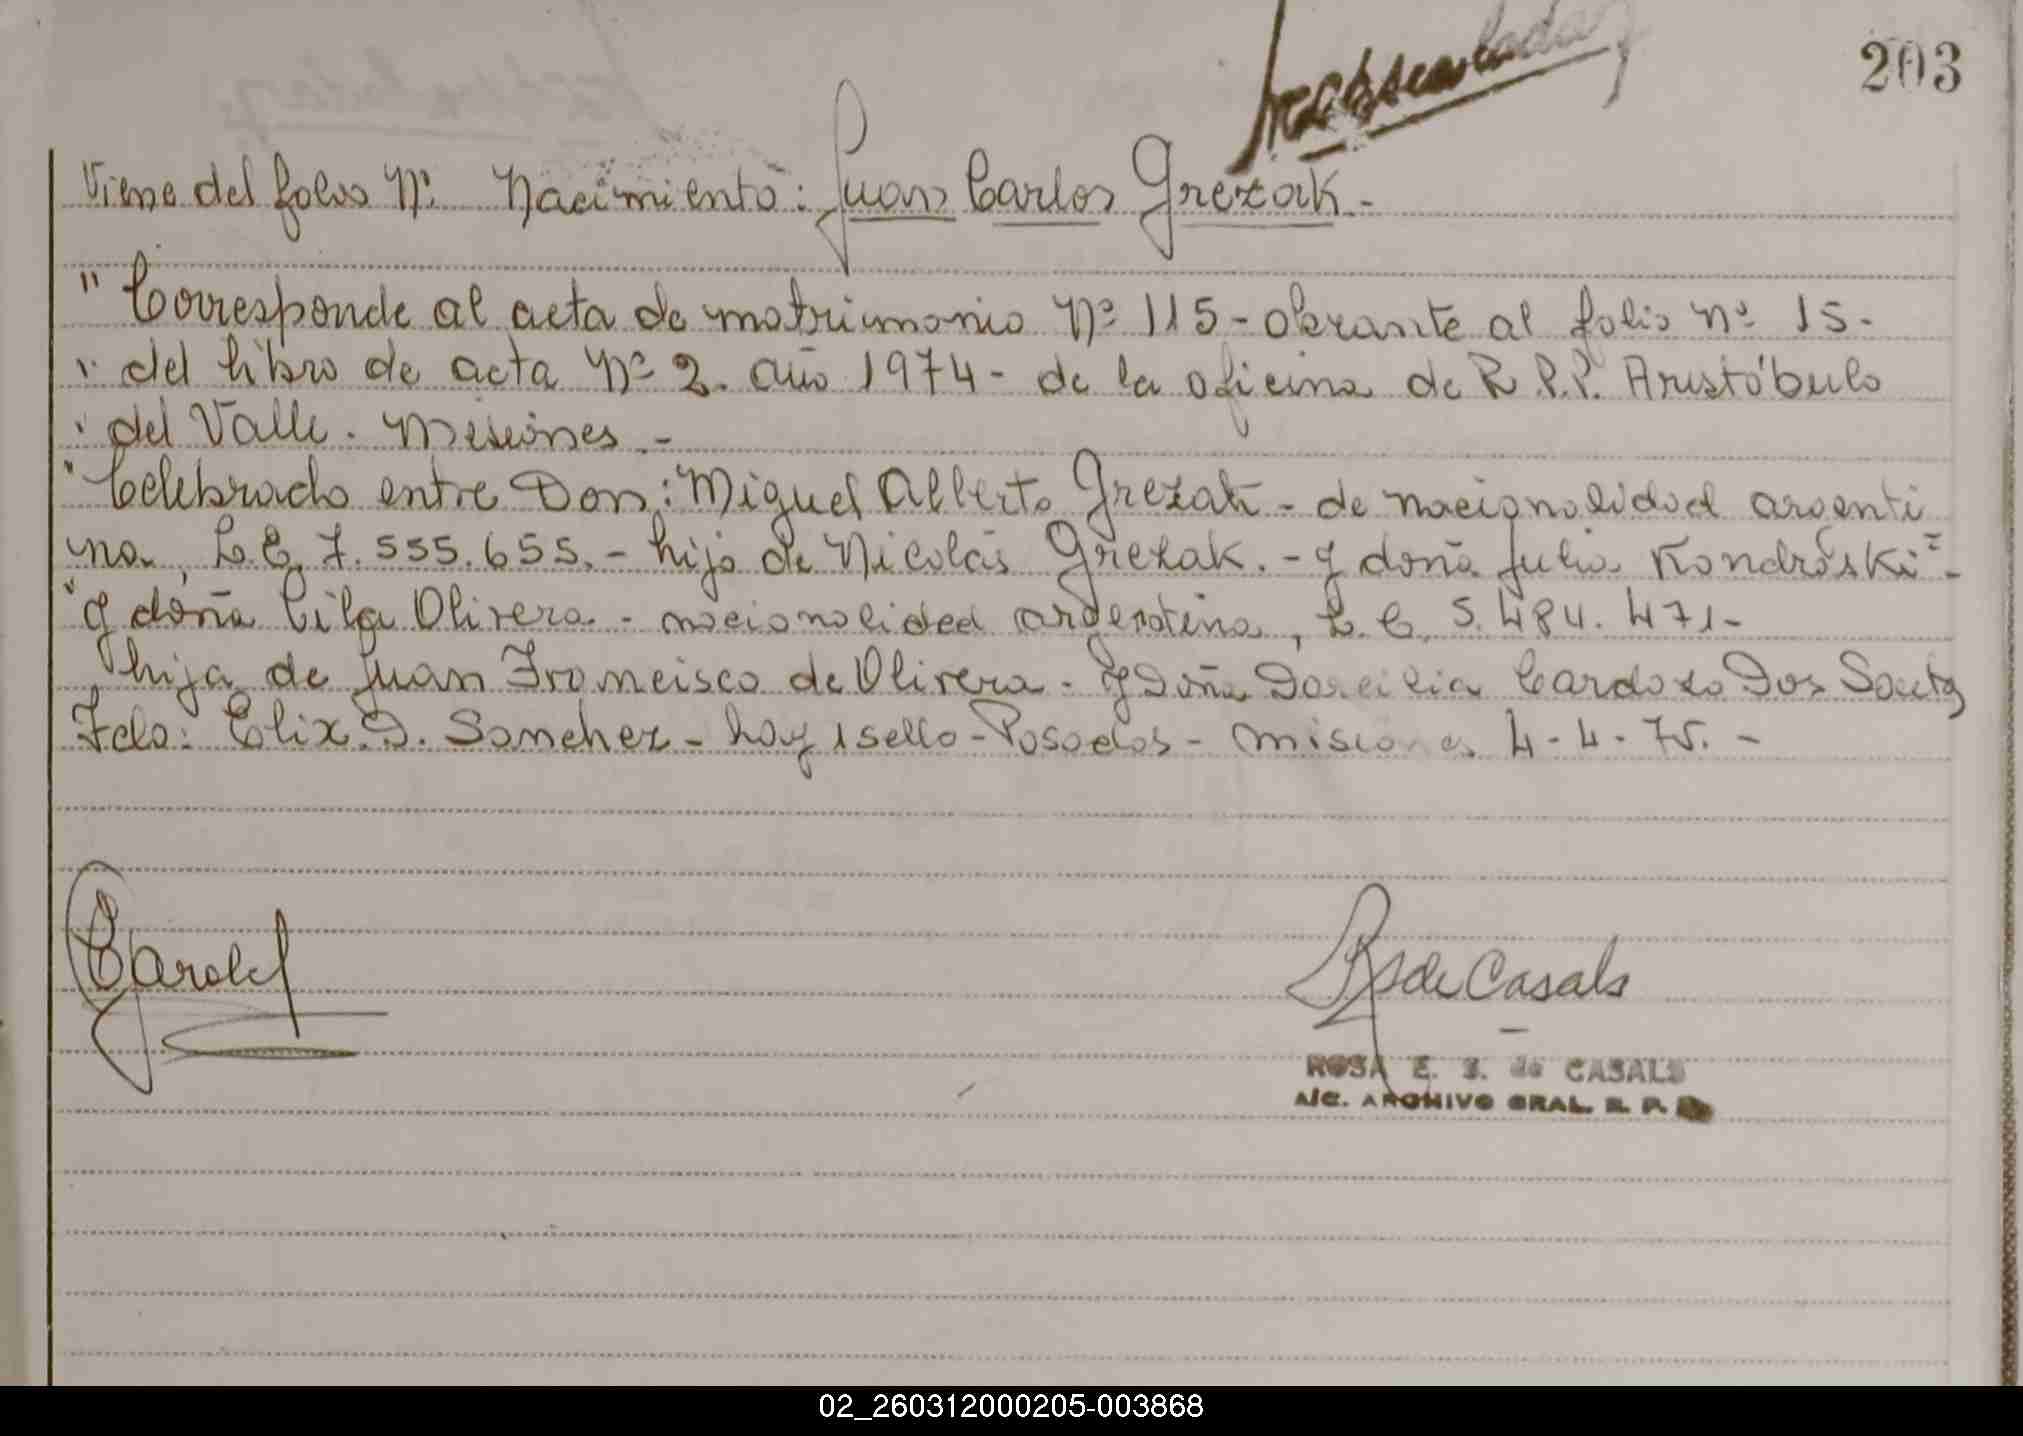 203
Viene del folio Nº Nacimiento: Juan Carlos Grezak.-
" Corresponde al acta de matrimonio Nº 115- obrante al folio nº 15-
" del libro de acta Nº 2. año 1974- de la oficina de R.P.P. Aristóbulo
" del Valle. Misiones.-
" Celebrado entre Don: Miguel Alberto Grezak - de nacionalidad argenti
na, L.E. 7.555.655.- hijo de Nicolás Grezak.- y doña Julia Kondróski"-
" y doña Cila Olivera.- nacionalidad argentina, L.C. 5.484.471-
hija de Juan Francisco de Olivera- y Doña Dorcilia Cardozo Dos Santos
Fdo: Elix. D. Sanchez- hay 1 sello- Posadas- Misiones 4-4-75.-
de Casals
ROSA E. S. de CASALS
A/C. ARCHIVO GRAL. R. P.
02_260312000205-003868